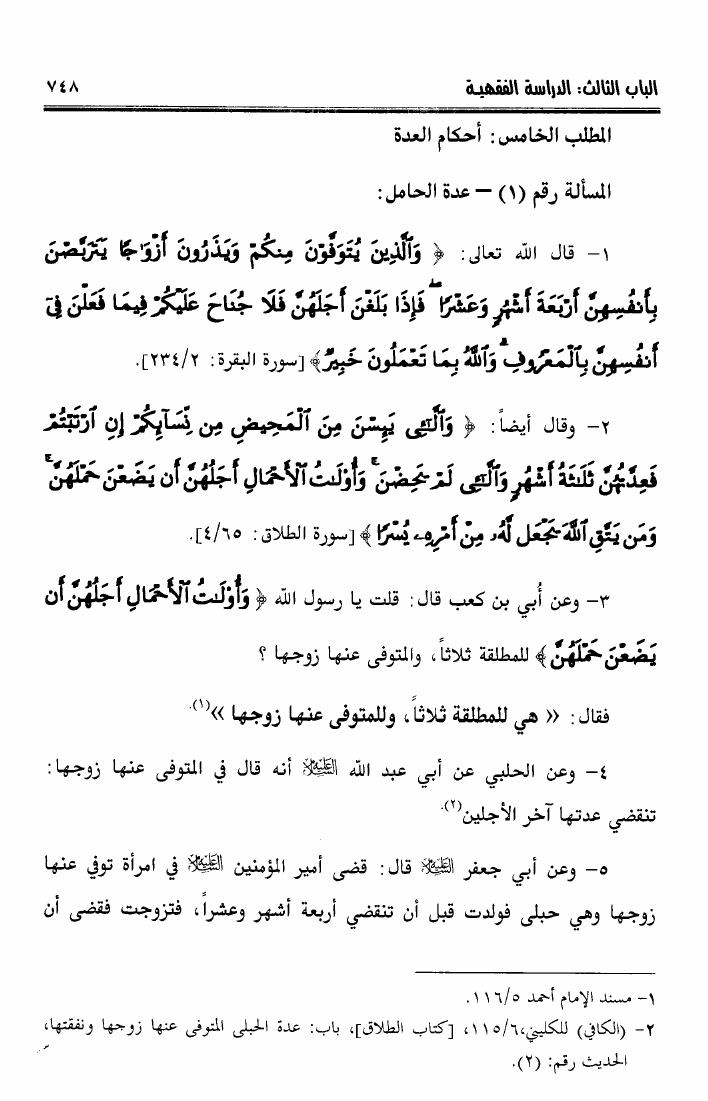 الباب الثالث: الدراسة الفقهية ٧٤٨
المطلب الخامس: أحكام العدة
المسألة رقم (١) – عدة الحامل:
١- قال الله تعالى: ﴿ وَٱلَّذِينَ يُتَوَفَّوْنَ مِنكُمْ وَيَذَرُونَ أَزْوَٰجًا يَتَرَبَّصْنَ
بِأَنفُسِهِنَّ أَرْبَعَةَ أَشْهُرٍ وَعَشْرًا ۖ فَإِذَا بَلَغْنَ أَجَلَهُنَّ فَلَا جُنَاحَ عَلَيْكُمْ فِيمَا فَعَلْنَ فِىٓ
أَنفُسِهِنَّ بِٱلْمَعْرُوفِ ۗ وَٱللَّهُ بِمَا تَعْمَلُونَ خَبِيرٌ﴾ [سورة البقرة: ٢٣٤/٢].
٢- وقال أيضاً: ﴿ وَٱلَّـٰٓـِٔى يَئِسْنَ مِنَ ٱلْمَحِيضِ مِن نِّسَآئِكُمْ إِنِ ٱرْتَبْتُمْ
فَعِدَّتُهُنَّ ثَلَـٰثَةُ أَشْهُرٍ وَٱلَّـٰٓـِٔى لَمْ يَحِضْنَ ۚ وَأُو۟لَـٰتُ ٱلْأَحْمَالِ أَجَلُهُنَّ أَن يَضَعْنَ حَمْلَهُنَّ ۚ
وَمَن يَتَّقِ ٱللَّهَ يَجْعَل لَّهُۥ مِنْ أَمْرِهِۦ يُسْرًا ﴾ [سورة الطلاق: ٤/٦٥].
٣- وعن أُبي بن كعب قال: قلت يا رسول الله ﴿ وَأُو۟لَـٰتُ ٱلْأَحْمَالِ أَجَلُهُنَّ أَن
يَضَعْنَ حَمْلَهُنَّ ﴾ للمطلقة ثلاثاً، والمتوفى عنها زوجها ؟
فقال: « هي للمطلقة ثلاثاً، وللمتوفى عنها زوجها »(١).
٤- وعن الحلبي عن أبي عبد الله عليه السلام أنه قال في المتوفى عنها زوجها:
تنقضي عدتها آخر الأجلين(٢).
٥- وعن أبي جعفر عليه السلام قال: قضى أمير المؤمنين عليه السلام في امرأة توفي عنها
زوجها وهي حبلى فولدت قبل أن تنقضي أربعة أشهر وعشراً، فتزوجت فقضى أن
١- مسند الإمام أحمد ١١٦/٥.
٢- (الكافي) للكليني،١١٥/٦، [كتاب الطلاق]، باب: عدة الحبلى المتوفى عنها زوجها ونفقتها،
الحديث رقم: (٢).